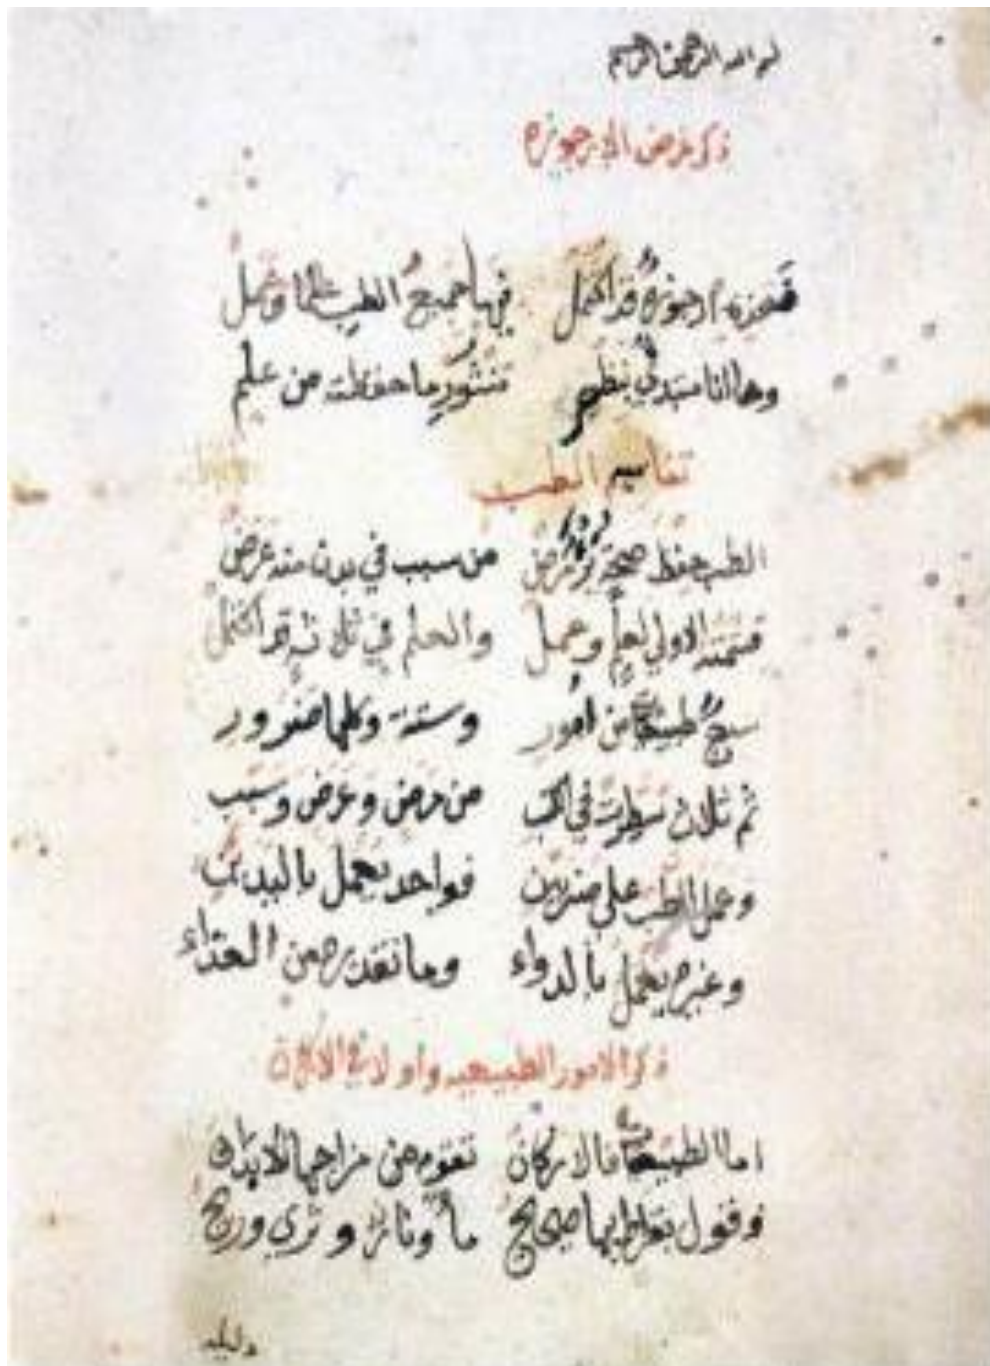 بسم الله الرحمن الرحيم
ذكر غرض الارجوزة
فهذه ارجوزة قد اكتمل فيها جميع الطب علما وعمل
وها انا مبتدئ بنظم منثور ما حفظته من علم
تقاسيم الطب
الطب حفظ صحة برؤ مرض من سبب في بدن منذ عرض
قسمته الاولي لعلم وعمل والعلم في ثلاثة قد اكتمل
سبع طبيعات من امور وستة وكلها ضرور
ثم ثلاث سطرت في الكتب من مرض وعرض وسبب
وعمل الطب علي ضربين فواحد يعمل باليدين
وغيره يعمل بالدواء وما تقدره من الغذاء
ذكر الامور الطبيعيه واولا في الاركان
اما الطبيعات فالاركان تقوم من مزاجها الابدان
وقول بقراط بها صحيح ماء ونار وثري وريح
دليله